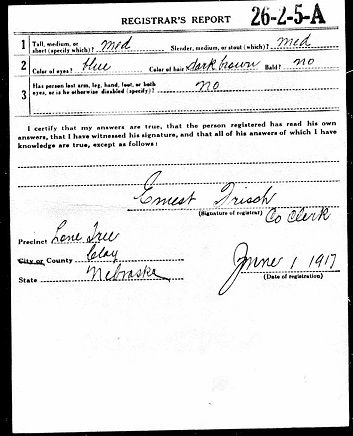 REGISTRAR'S REPORT 26-2-5-A
1 Tall, medium, or short (specify which)? Med Slender, medium, or stout (which)? Med
2 Color of eyes? blue Color of hair? Dark brown Bald? No
3 Has person lost arm, leg, hand, foot, or both eyes, or is he otherwise disabled (specify)? No
I certify that my answers are true, that the person registered has read his own
answers, that I have witnessed his signature, and that all of his answers of which I have
knowledge are true, except as follows:
Ernest Trisch
(Signature of registrar) Co Clerk
Precinct Lone Tree
City or County Clay
State Nebraska
June 1 1917
(Date of registration)